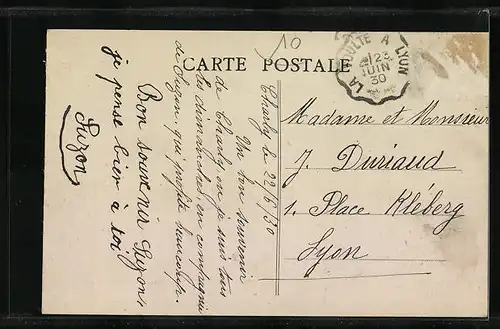 CARTE POSTALE
10
LA VOULTE A LYON
23
JUIN
30
Charly le 22/6/30
Un bon souvenir
de Charly, ou je suis tous
les dimanches, en compagnie
de Segon, qui profite beaucoup.
Bon souvenir Lizon,
je pense bien à toi
Suzon
Madame et Monsieur
J. Duriaud
1, Place Kléberg
Lyon